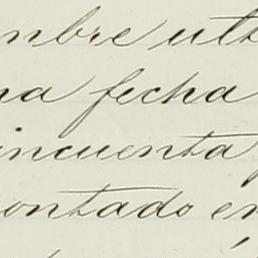 mbre ult
na fecha
incuenta
ontado en